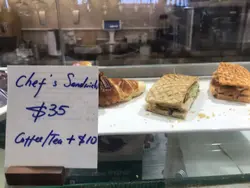 Chef's Sandwich
$35
Coffee/Tea + $10